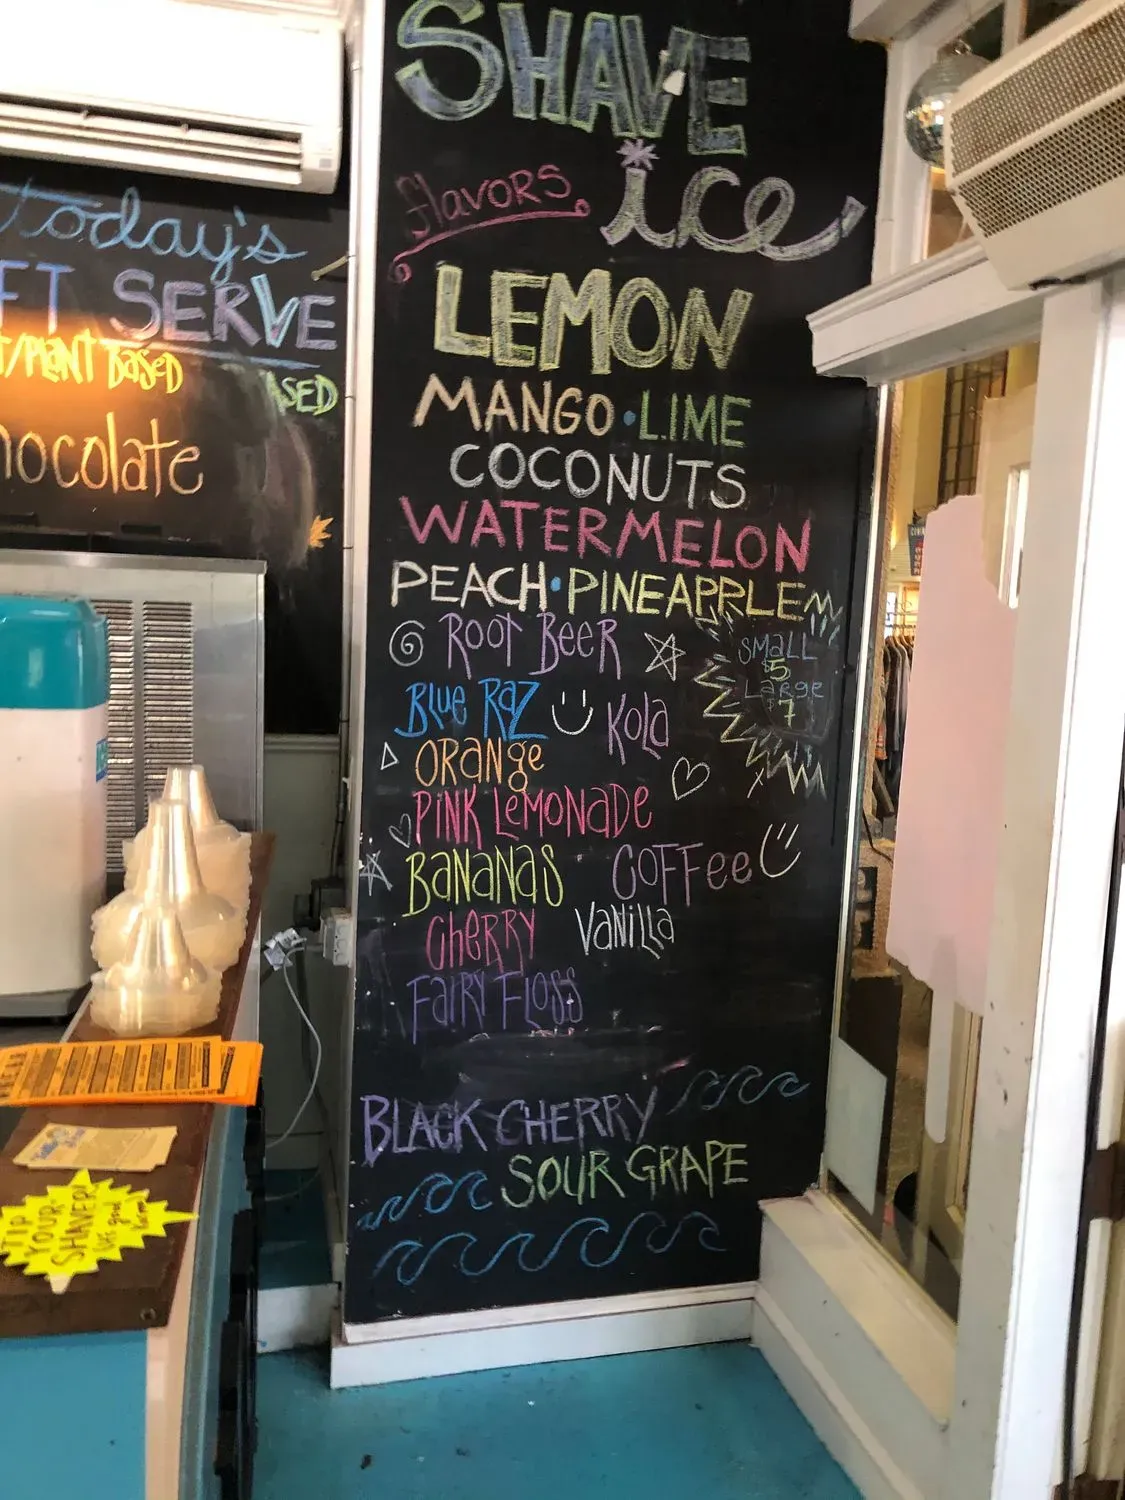 today's
FT SERVE
T/PLANT BASED
ASED
hocolate
SHAVE
ice
flavors
LEMON
MANGO • LIME
COCONUTS
WATERMELON
PEACH • PINEAPPLE
ROOT BEER
SMALL
$5
Large
$7
BLUE RAZ
KOLA
ORANge
PINK LEMONADE
BANANAS
COFFee
CHERRY
VANILLA
FAIRY FLOSS
BLACK CHERRY
SOUR GRAPE
TIP
YOUR
SHAVER!